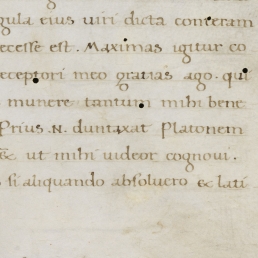 gula eius uiri dicta conteram
ecesse est. Maximas igitur co
receptori meo gratias ago. qui
munere tantum mihi bene
Prius .N. duntaxat Platonem
& ut mihi uideor cognoui.
si aliquando absoluero ex lati